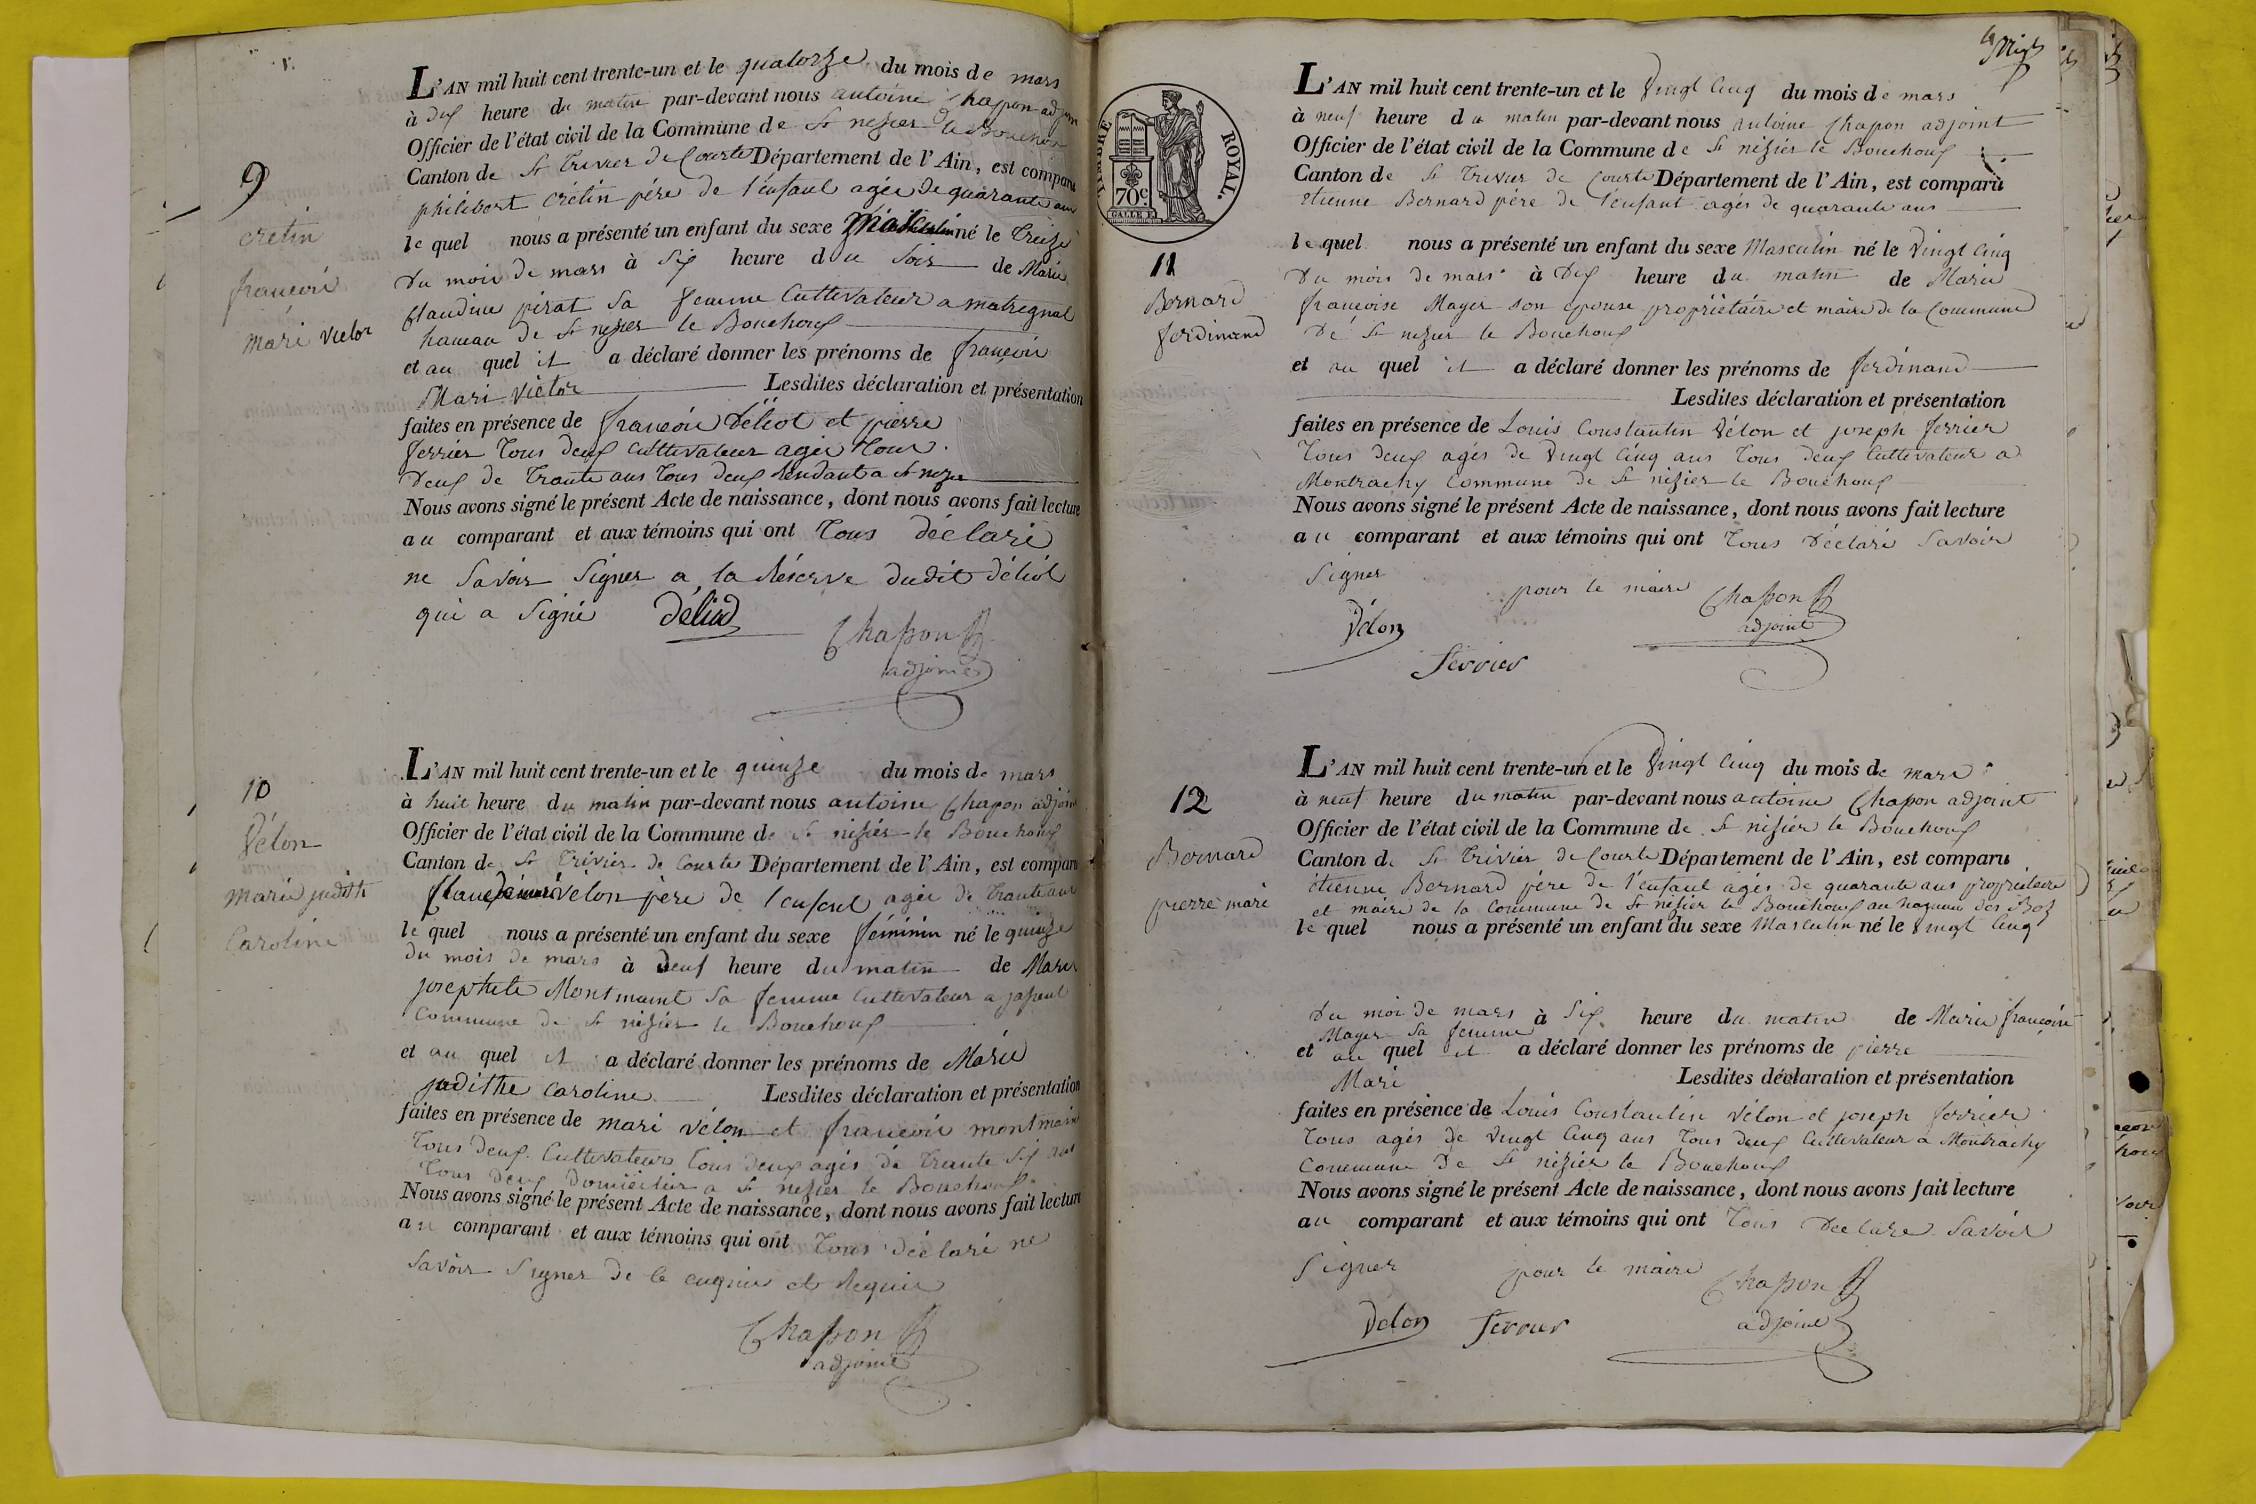 9
cretin
françois
mari victor
L'AN mil huit cent trente-un et le quatorze du mois de mars
à dix heure du matin par-devant nous antoine Chapon adjoint
Officier de l'état civil de la Commune de St nizier le Bouchoux
Canton de St Trivier de Courte Département de l'Ain, est comparu
philibert crétin père de l'enfant agée de quarante ans
le quel nous a présenté un enfant du sexe Masculin né le Treize
Du mois de mars à Six heure du Soir de Marie
Claudine pirat Sa femme Cultivateur a matregnal
hameau de St nizier le Bouchoux
et au quel il a déclaré donner les prénoms de françois
Mari Victor Lesdites déclaration et présentation
faites en présence de françois Déliot et pierre
ferrier Tous deux Cultivateur agée Tous
Deux de Trante ans Tous deux Rendant a St nizier
Nous avons signé le présent Acte de naissance, dont nous avons fait lecture
au comparant et aux témoins qui ont Tous déclaré
ne Savoir Signer a la Réserve dudit déliot
qui a Signé Déliot
Chapon
adjoint
10
Vélon
marie judith
Caroline
L'AN mil huit cent trente-un et le quinze du mois de mars
à huit heure du matin par-devant nous antoine Chapon adjoint
Officier de l'état civil de la Commune de St nizier le Bouchoux
Canton de St Trivier de Courte Département de l'Ain, est comparu
vélon père de l'enfent agée de Trante ans
le quel nous a présenté un enfant du sexe féminin né le quinze
du mois de mars à deux heure du matin de Marie
josephete Montmaint Sa femme Cultivateur a
Commune de St nizier le Bouchoux
et au quel il a déclaré donner les prénoms de Marie
judithe Caroline Lesdites déclaration et présentation
faites en présence de mari vélon et françois montmain
Tous deux Cultivateurs Tous deux agés de Trante Six ans
Tous deux Domicilier a St nizier le Bouchoux
Nous avons signé le présent Acte de naissance, dont nous avons fait lecture
au comparant et aux témoins qui ont Tous déclaré ne
Savoir Signer de ce enquis et Requis
Chapon
adjoint
TIMBRE ROYAL.
70c
11
Bernard
ferdinand
L'AN mil huit cent trente-un et le Vingt Cinq du mois de mars
à neuf heure du matin par-devant nous antoine Chapon adjoint
Officier de l'état civil de la Commune de St nizier le Bouchoux
Canton de St Trivier de Courte Département de l'Ain, est comparu
etienne Bernard père de l'enfant agés de quarante ans
le quel nous a présenté un enfant du sexe Masculin né le Vingt Cinq
Du mois de mars à Dix heure du matin de Marie
françoise Mayer son épouse propriétaire et maire de la Commune
De St nizier le Bouchoux
et au quel il a déclaré donner les prénoms de ferdinand
Lesdites déclaration et présentation
faites en présence de Louis Constantin Vélon et joseph ferrier
Tous deux agés de Vingt Cinq ans Tous deux Cultivateur a
Montrachy Commune de St nizier le Bouchoux
Nous avons signé le présent Acte de naissance, dont nous avons fait lecture
au comparant et aux témoins qui ont Tous Déclaré Savoir
Signer pour le maire Chapon
adjoint
Vélon
ferrier
12
Bernard
pierre mari
L'AN mil huit cent trente-un et le Vingt Cinq du mois de mars
à neuf heure du matin par-devant nous antoine Chapon adjoint
Officier de l'état civil de la Commune de St nizier le Bouchoux
Canton de St Trivier de Courte Département de l'Ain, est comparu
étienne Bernard père de l'enfant agés de quarante ans propriétaire
et maire de la Commune de St nizier le Bouchoux au hameau des Boz
le quel nous a présenté un enfant du sexe Masculin né le Vingt Cinq
Du moi de mars à Six heure du matin de Marie françoise
Mayer Sa femme
et au quel il a déclaré donner les prénoms de pierre
Mari Lesdites déclaration et présentation
faites en présence de Louis Constantin Vélon et joseph ferrier
Tous agés de Vingt Cinq ans Tous deux Cultivateur a Montrachy
Commune De St nizier le Bouchoux
Nous avons signé le présent Acte de naissance, dont nous avons fait lecture
au comparant et aux témoins qui ont Tous Déclare Savoir
Signer pour le maire Chapon
adjoint
Velon ferrier